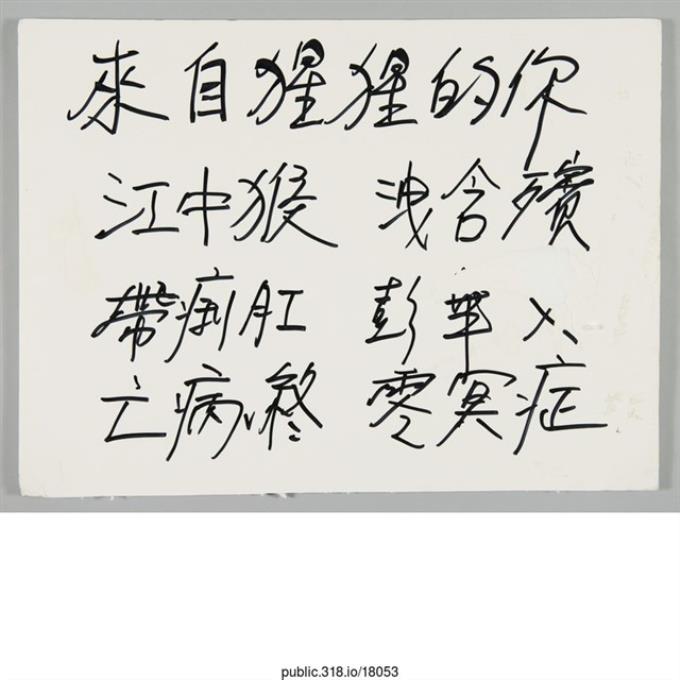 來自猩猩的你
江中猴 洩含殯
帶痢肛 彭苹入
亡病終 零冥症
public.318.io/18053